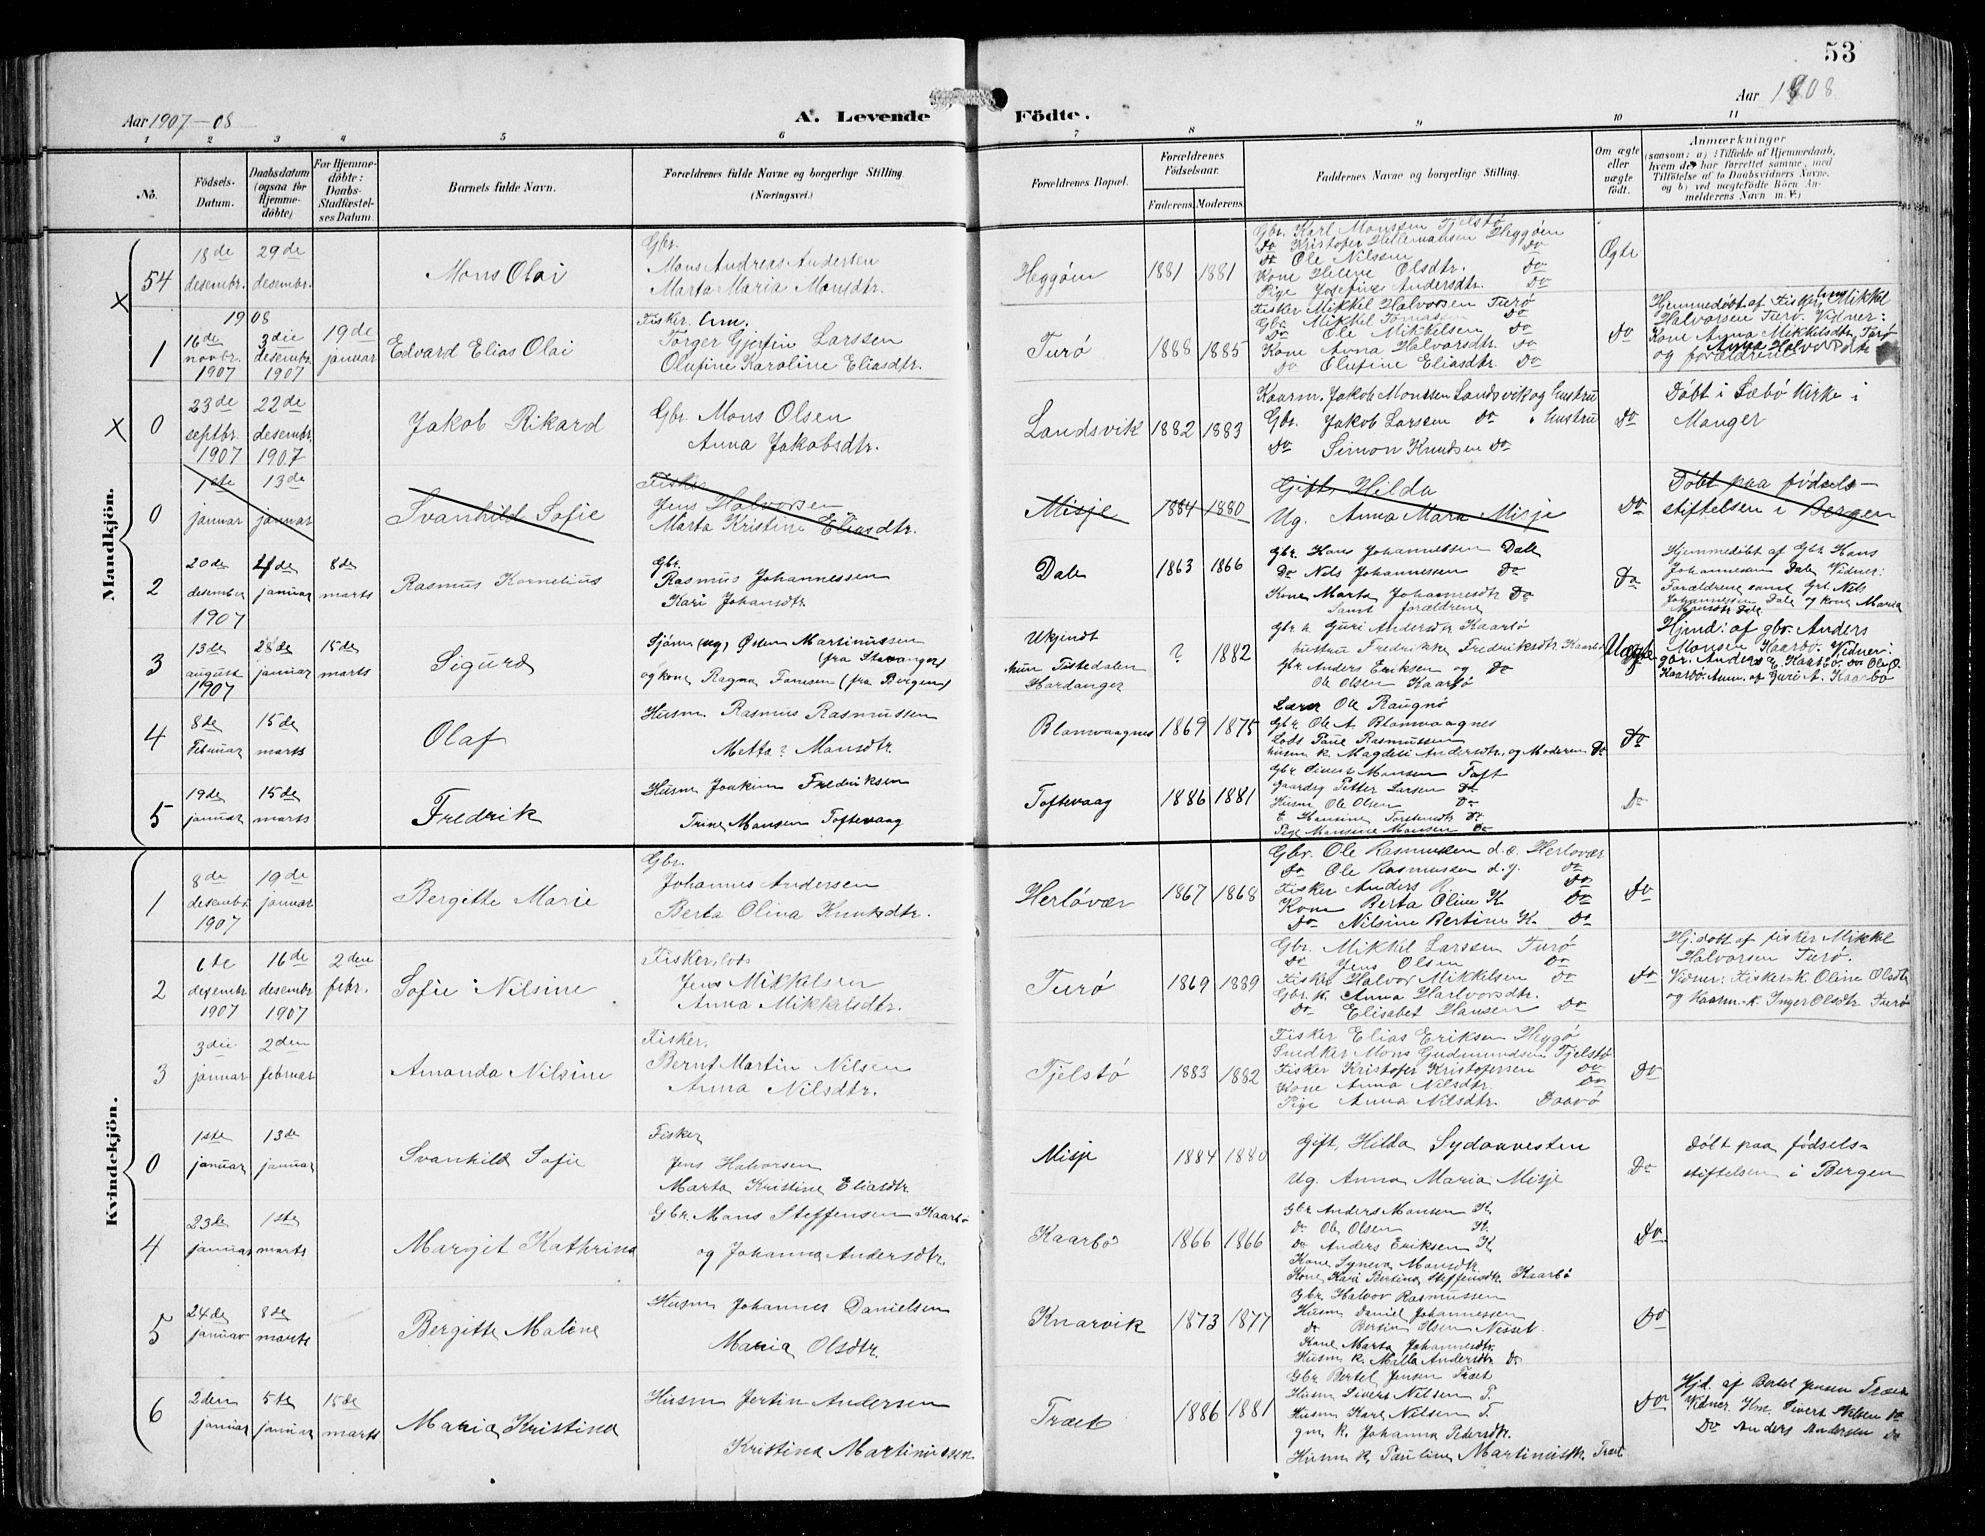 53
Aar 1907-08
A. Levende Födte.
Aar 1908
1 2 3 4 5 6 7 8 9 10 11
No.
Födsels-Datum.
Daabsdatum (ogsaa for Hjemme-döbte;)
For Hjemme-döbte: Daabs-Stadfæstelses Datum.
Barnets fulde Navn.
Forældrenes fulde Navne og borgerlige Stilling (Næringsvei.)
Forældrenes Bopæl.
Forældrenes Födselsaar.
Faderens. Moderens.
Faddernes Navne og borgerlige Stilling.
Om ægte eller uægte födt.
Anmærkninger
(saasom: a) i Tilfælde af Hjemmedaab, hvem der har forrettet samme, med Tilföielse af to Daabsvidners Navne, og b) ved uægtefödte Börn Anmelderens Navn m. V.)
Mandkjön.
54
18de desembr.
29de desembr.
Mons Olai
Gbr.
Mons Andreas Andersen
Marta Maria Monsdtr.
Heggøen
1881 1881
Gbr. Karl Monssen Tjelstø
Do Kristofer Hellemansen Heggøen
Do Ole Nilssen Do
Kone Helene Olsdtr. Do
Pige Josefine Andersdtr. Do
Ægte
1908
1
16de novbr. 1907
3die desembr. 1907
19de januar
Edvard Elias Olai
Fisker. hm.
Torger Gjertin Larssen
Olufine Karoline Eliasdtr.
Turø
1888 1885
Fisker Mikkel Halvorsen Turø
Gbr. Mikkel Tomassen Do
Do Ole Mikkelsen Do
Kone Anna Halvorsdtr. Do
Do Olufine Eliasdtr. Do
Do
Hjemmedøbt af Fisker hm Mikkel
Halvorsen Turø. Vidner:
Kone Anna Mikkelsdtr. Turø
og forældrene
0
23de septbr. 1907
22de desembr. 1907
Jakob Rikard
Gbr. Mons Olsen
Anna Jakobsdtr.
Landsvik
1882 1883
Kaarm. Jakob Monssen Landsvik og hustru
Gbr. Jakob Larssen Do hustru
Do Simon Knudsen Do
Do
Døbt i Sæbø Kirke i
Manger
0
1ste januar
13de januar
Svanhild Sofie
Fisker
Jens Halvorsen
Marta Kristine Eliasdtr.
Misje
1884 1880
Gift, Hilda
Ug. Anna Mara Misje
Do
Døbt paa fødsels-
stiftelsen i Bergen
2
20de desember 1907
4de januar
8de marts
Rasmus Kornelius
Gbr.
Rasmus Johannessen
Kari Johansdtr
Dale
1863 1866
Gbr. Hans Johannessen Dale
Do Nils Johannessen Do
Kone Marta Johannesdtr Do
samt forældrene
Do
Hjemmedøbt af Gbr Hans
Johannessen Dale Vidner:
Forældrene samt Gbr. Nils
Johannessen Dale og kone Maria
Monsdtr Dale
3
13de august 1907
28de januar
15de marts
Sigurd
Sjöm (ug) Østen Martinussen
(fra Stavanger)
og kone Ragna Tomesen (fra Bergen)
Ukjendt
Hardanger
? 1882
Gbr. k. Guri Andersdtr Kaarbø
hustru Fredrikke Fredriksdtr Kaarbø
Gbr Anders Eriksen og Do
Ole Olsen Kaarbø
Uægte
Hjmd: af gbr. Anders
Monsen Kaarbø. Vidner:
gbr. Anders E. Kaarbø Do Ole O.
Kaarbø. Anm. af Guri A. Kaarbø
4
8de Februar
15de marts
Olaf
Husm Rasmus Rasmussen
Metta? Monsdtr
Blomvaagnes
1869 1875
Lærer Ole Raugnø
Gbr. Ole A. Blomvaagnes
Lods Paul Rasmussen
husm k. Magdeli Andersdtr, og Moderen Do
Do
5
19de januar
15de marts
Fredrik
Husm Joakim Fredriksen
Trine Monsen Toftevaag
Toftevaag
1886 1881
Gbr. Sivert Monsen Toft
Gaardbr Petter Larsen Do
Husm Ole Olsen Do
Pige Monsine Monsen Do
Do
Kvindekjön.
1
8de desembr. 1907
19de januar
Bergitte Marie
Gbr.
Johannes Andersen
Berta Olina Knutsdtr.
Herløvær
1867 1868
Gbr. Ole Rasmussen d.e. Herløvær
Do Ole Rasmussen d.y. Do
Fisker Anders R. Do
Kone Berta Oline K. Do
Do Nilsine Bertine K. Do
Do
2
6te desembr 1907
16de desembr 1907
2den febr.
Sofie Nilsine
Fisker, lods
Jens Mikkelsen
Anna Mikkelsdtr.
Turø
1869 1889
Gbr. Mikkel Larssen Turø
Do Jens Olsen Do
Fisker Halvor Mikkelsen Do
Gbr. k. Anna Harlvorsdtr.
Do Elisabet Hansen Do
Do
Hj.døbt af fisker Mikkel
Halvorsen Turø.
Vidner: Fisker-K. Oline Olsdtr.
og Kaarm.-k. Inger Olsdtr Turø
3
3die januar
2den februar
Amanda Nilsine
Fisker.
Bernt Martin Nilsen
Anna Nilsdtr.
Tjelstø
1883 1882
Fisker Elias Eriksen Heggø
Snedker Mons Gudmundsen Tjelstø
Fisker Kristofer Kristofersen Do
Kone Anna Nilsdtr. Do
Pige Anna Nilsdtr. Daavø
Do
0
1ste januar
13de januar
Svanhild Sofie
Fisker
Jens Halvorsen
Marta Kristine Eliasdtr
Misje
1884 1880
Gift, Hilda Sydøavesten
Ug. Anna Maria Misje
Do
Døbt paa fødsels-
stiftelsen i Bergen
4
23de januar
1ste marts
Margit Kathrina
Gbr. Mons Steffensen Kaarbø
og Johanna Andersdtr.
Kaarbø
1866 1866
Gbr Anders Monsen K.
Do Ole Olsen K.
Do Anders Eriksen K
Kone Synneva Monsdtr.
Kone Kari Bertina Steffensdtr. Kaarbø
Do
5
24de januar
8de marts
Bergitte Malene
Husm Johannes Danielsen
Maria Olsdtr.
Knarvik
1873 1877
Gbr Halvor Rasmussen
Husm Daniel Johannessen
Do Bertin Olsen Nesset.
Kone Marta Johannesdtr.
Husm k. Milla Andersdtr Do
Do
6
2den januar
5te januar
15de marts
Maria Kristina
Husm Jertin Andersen
Kristina Martinussen
Træet
1886 1881
Gbr Bertel Jensen Træet
Husm Sivert Nilsen T.
Husm Karl Nilsen T.
gm k. Johanna Pedersdtr.
Husm k. Pauline Martinusdtr. Træet
Do
Hjd. af Bertel Jensen Træet
Vidner Hm. Sivert Nilsen Do
Do Anders Andersen Do